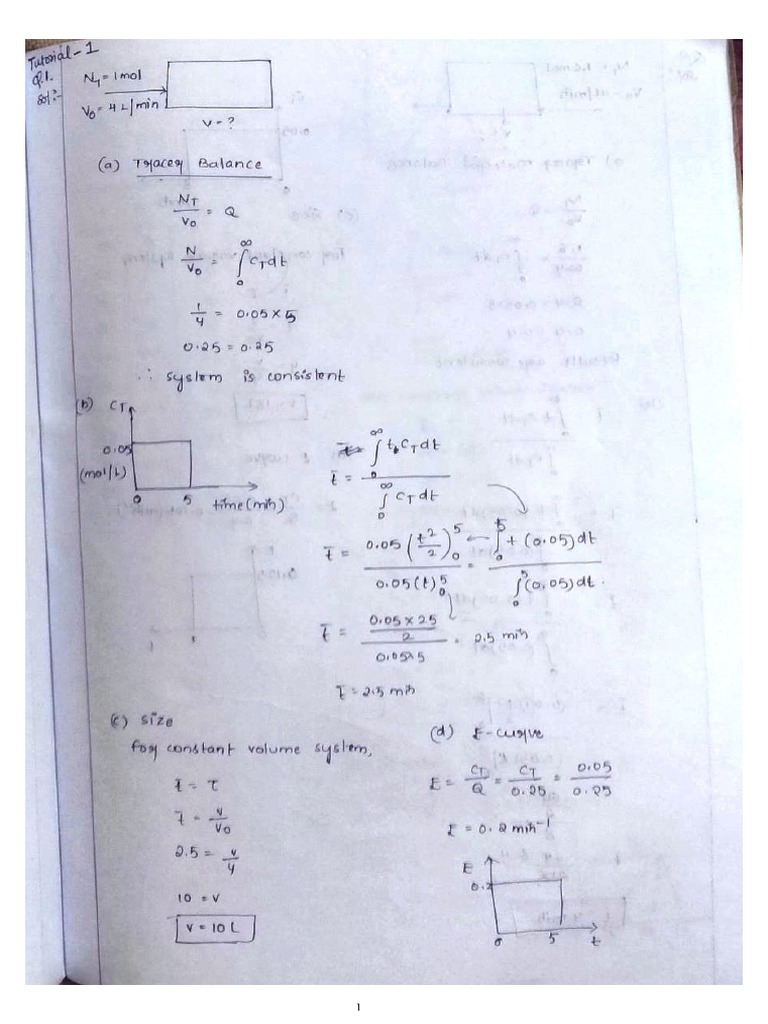 Tutorial - 1
Q.1.
Sol:-
N_T = 1 mol
V₀ = 4 L/min
V = ?
(a) Tracer Balance
N_T / V₀ = Q
N / V₀ = ∫₀^∞ C_T dt
1/4 = 0.05 × 5
0.25 = 0.25
∴ system is consistent
(b) C_T
0.05
(mol/L)
0 5 time (min)
t̄ = ∫₀^∞ t C_T dt / ∫₀^∞ C_T dt
t̄ = 0.05 (t²/2)₀⁵ / 0.05 (t)₀⁵ = ∫₀⁵ t (0.05) dt / ∫₀⁵ (0.05) dt.
t̄ = (0.05 × 25 / 2) / 0.05×5 = 2.5 min
t̄ = 2.5 min
(c) Size
For constant volume system,
t̄ = τ
t̄ = V / V₀
2.5 = V / 4
10 = V
V = 10 L
(d) E-curve
E = C_T / Q = C_T / 0.25 = 0.05 / 0.25
E = 0.2 min⁻¹
E
0.2
0 5 t
1